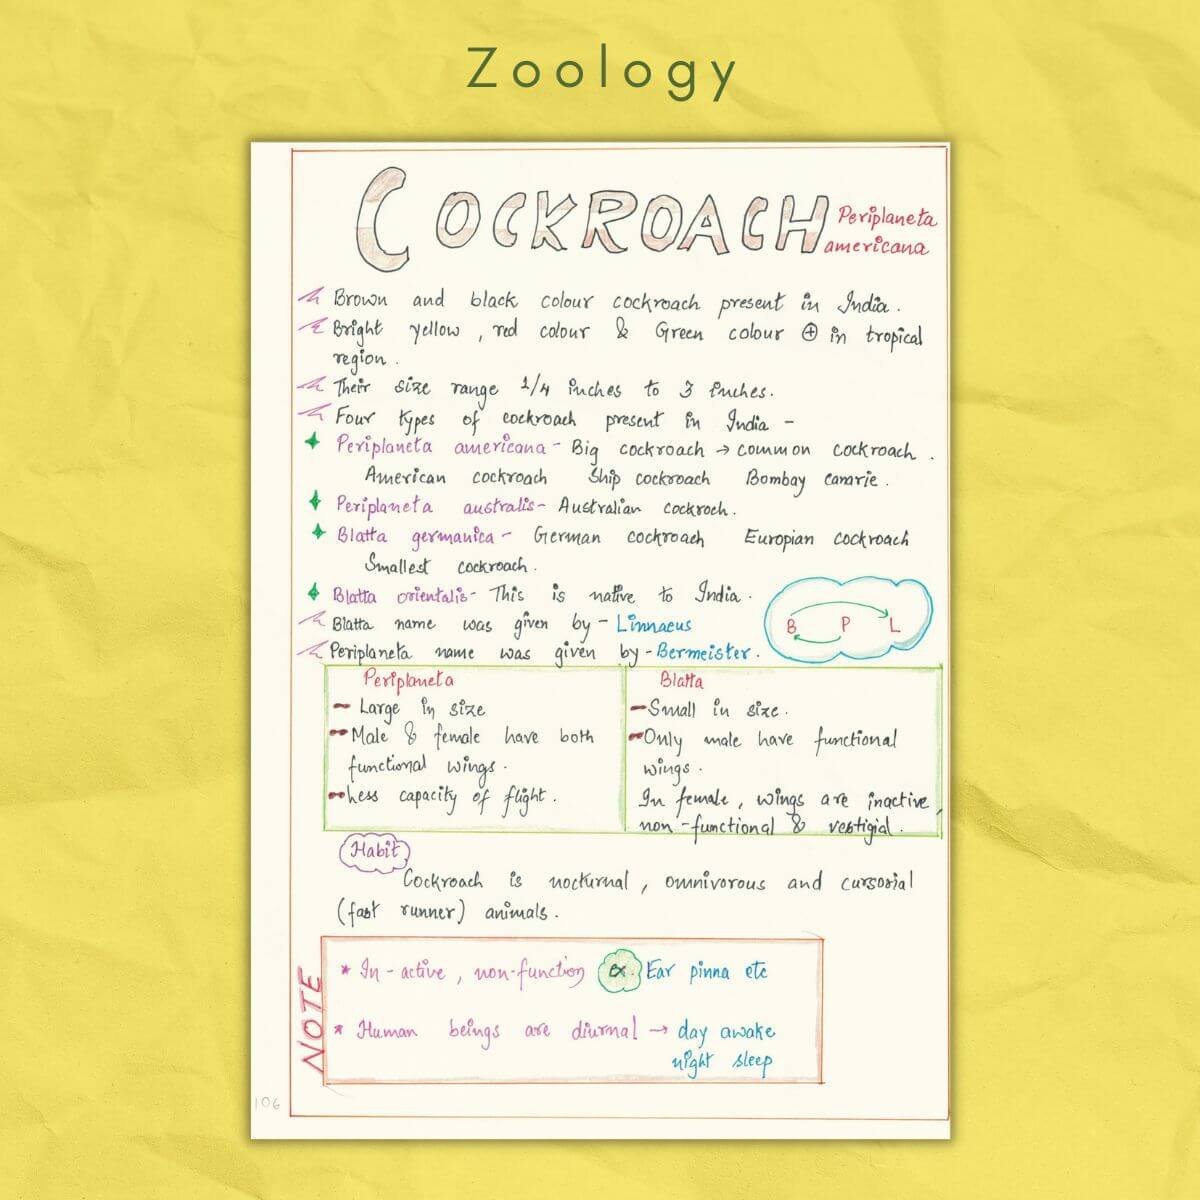 Zoology
COCKROACH
Periplaneta
americana
Brown and black colour cockroach present in India.
Bright yellow, red colour & Green colour ⊕ in tropical
region.
Their size range 1/4 inches to 3 inches.
Four types of cockroach present in India -
Periplaneta americana - Big cockroach → common cockroach.
American cockroach Ship cockroach Bombay canarie.
Periplaneta australis - Australian cockroch.
Blatta germanica - German cockroach Europian cockroach
Smallest cockroach.
Blatta orientalis - This is native to India.
Blatta name was given by - Linnaeus
B P L
Periplaneta name was given by - Bermeister.
Periplaneta
- Large in size
- Male & female have both
functional wings.
- Less capacity of flight.
Blatta
- Small in size.
- Only male have functional
wings.
In female, wings are inactive,
non-functional & vestigial.
Habit
Cockroach is nocturnal, omnivorous and cursorial
(fast runner) animals.
NOTE
* In-active, non-function ex. Ear pinna etc
* Human beings are diurnal → day awake
night sleep
106